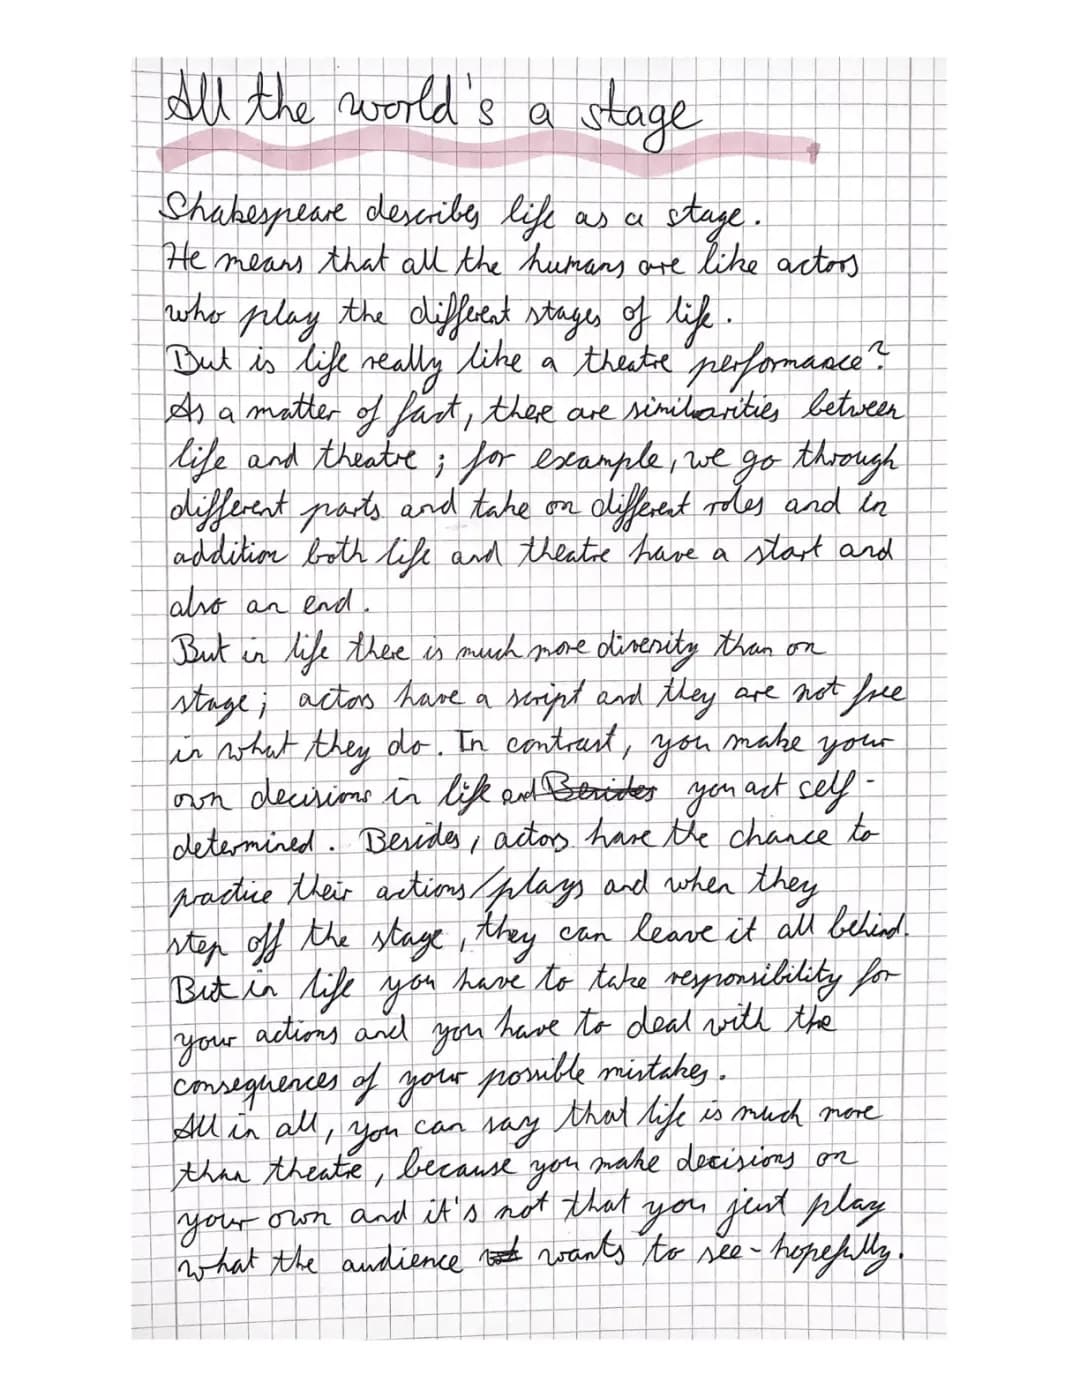 All the world's a stage
Shakespeare describes life as a stage.
He means that all the humans are like actors
who play the different stages of life.
But is life really like a theatre performance?
As a matter of fact, there are similarities between
life and theatre; for example, we go through
different parts and take on different roles and in
addition both life and theatre have a start and
also an end.
But in life there is much more diversity than on
stage; actors have a script and they are not free
in what they do. In contrast, you make your
own decisions in life and Besides you act self-
determined. Besides, actors have the chance to
practice their actions/plays and when they
step off the stage, they can leave it all behind.
But in life you have to take responsibility for
your actions and you have to deal with the
consequences of your possible mistakes.
All in all, you can say that life is much more
than theatre, because you make decisions on
your own and it's not that you just play
what the audience wants to see - hopefully.